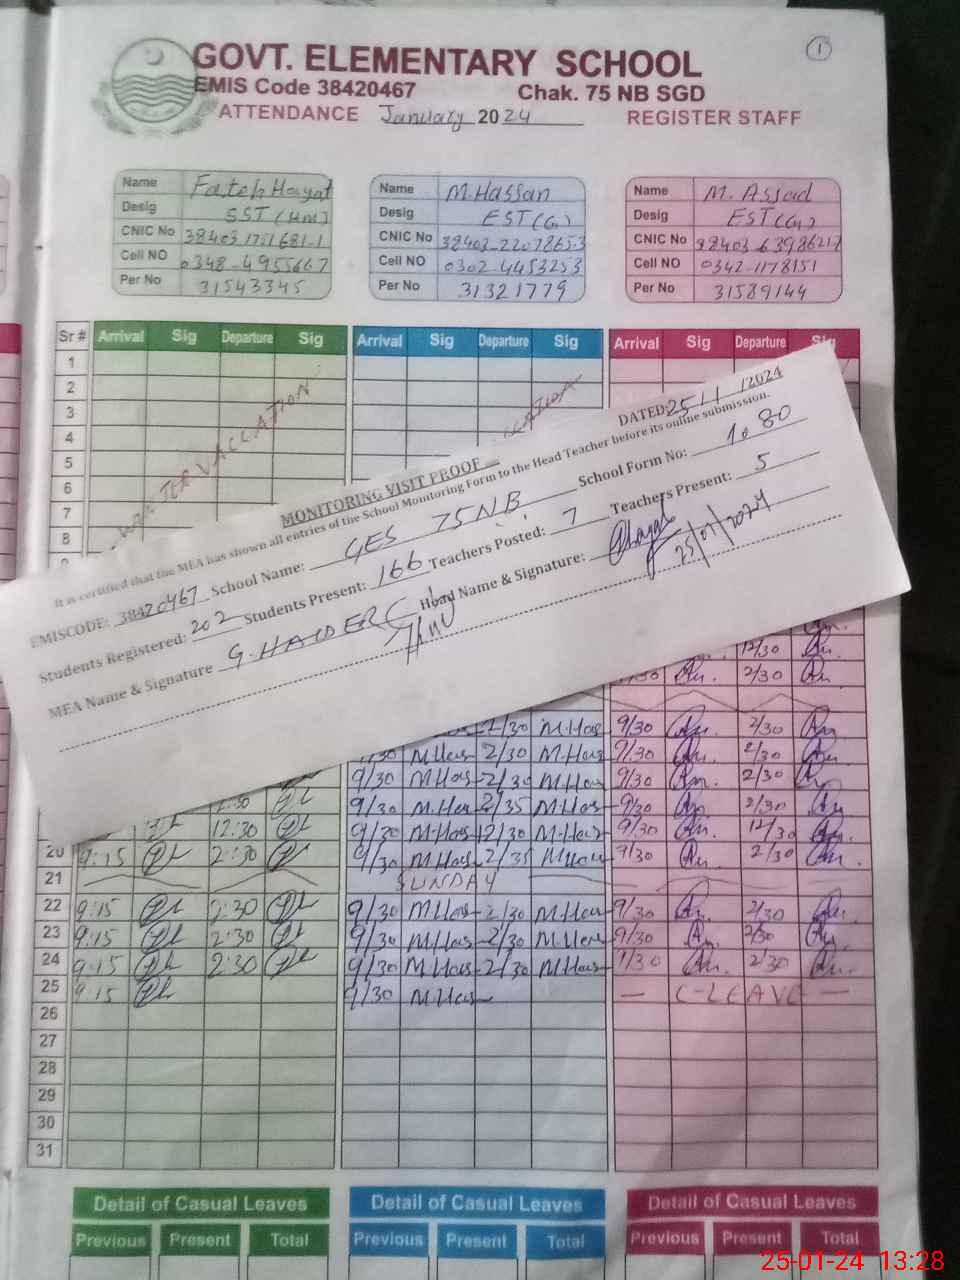 1
GOVT. ELEMENTARY SCHOOL
EMIS Code 38420467 Chak. 75 NB SGD
ATTENDANCE January 2024 REGISTER STAFF
Name Fateh Hayat
Desig SST (HM)
CNIC No 38403 1751681-1
Cell NO 0348-4955667
Per No 31543345
Name M.Hassan
Desig EST(G)
CNIC No 38403-2207865-3
Cell NO 0302-4453253
Per No 31321779
Name M. Assad
Desig EST(G)
CNIC No 38403-6398621-7
Cell NO 0342-1178151
Per No 31589144
Sr # Arrival Sig Departure Sig Arrival Sig Departure Sig Arrival Sig Departure Sig
1
2
3
4
5
6
7
8
MONITORING VISIT PROOF DATED: 25/1/2024
It is certified that the MEA has shown all entries of the School Monitoring Form to the Head Teacher before its online submission.
EMISCODE: 38420467 School Name: GES 75NB School Form No: 1080
Students Registered: 202 Students Present: 166 Teachers Posted: 7 Teachers Present: 5
MEA Name & Signature G.HAIDER Head Name & Signature:
25/01/2024
12/30
2/30
2/30 M.Has 9/30 2/30
M.Has 2/30 M.Has 9/30 2/30
9/30 M.Has 2/30 M.Has 9/30 2/30
9/30 M.Has 2/35 M.Has 9/30 2/30
12:30 9/30 M.Has 12/30 M.Has 9/30 12/30
20 9:15 2:30 9/30 M.Has 2/35 M.Has 9/30 2/30
21 SUNDAY
22 9:15 2:30 9/30 M.Has 2/30 M.Has 9/30 2/30
23 9:15 2:30 9/30 M.Has 2/30 M.Has 9/30 2/30
24 9:15 2:30 9/30 M.Has 2/30 M.Has 9/30 2/30
25 9:15 9/30 M.Has C-LEAVE
26
27
28
29
30
31
Detail of Casual Leaves Detail of Casual Leaves Detail of Casual Leaves
Previous Present Total Previous Present Total Previous Present Total
25-01-24 13:28